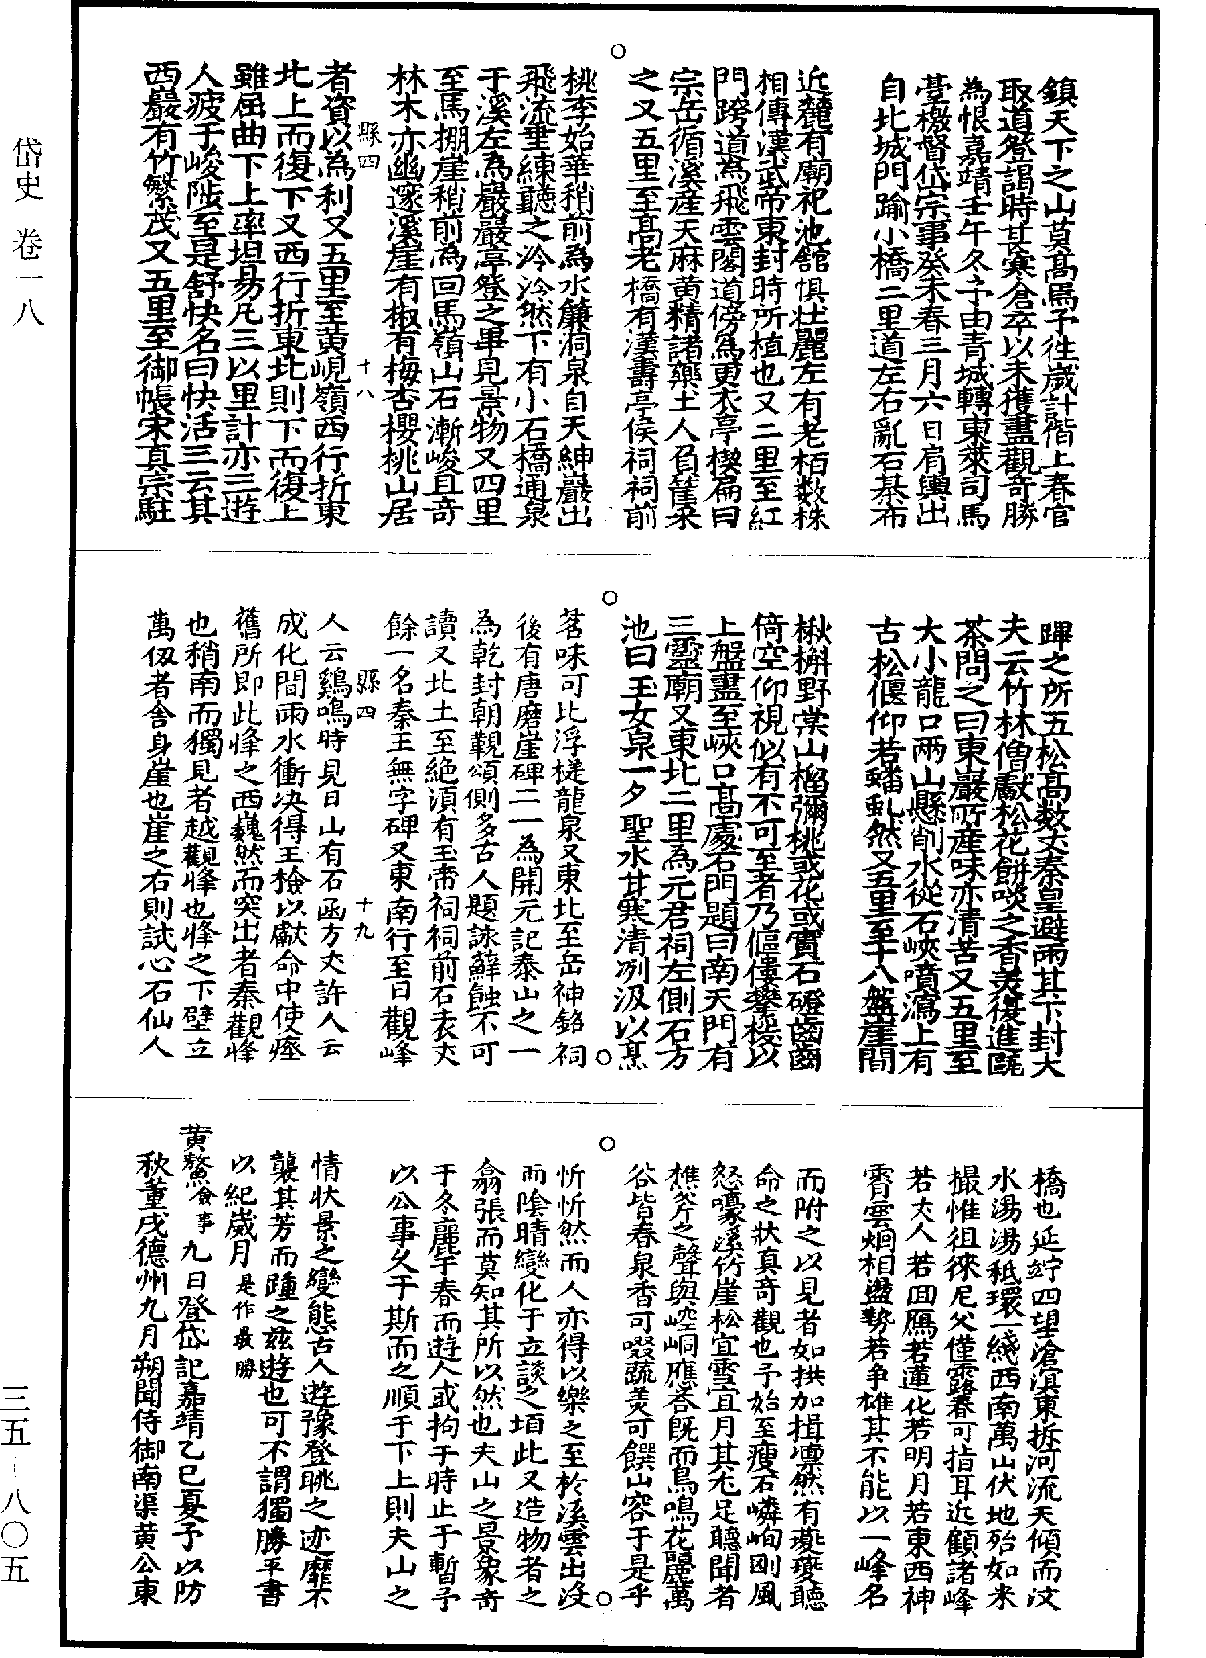 岱史 卷一八
鎮天下之山莫髙焉予徃歲計偕上春官
取道登謁時甚寒倉卒以未獲盡觀奇勝
為恨嘉靖壬午冬予由青城轉東萊司馬
臺檄督岱宗事癸未春三月六日肩輿出
自北城門踰小橋二里道左右亂石棊布
近麓有廟祀池舘惧壮麗左有老栢数株
相傳漢武帝東封時所植也又二里至紅
門跨道為飛雲閣道傍為更衣亭楔扁曰
宗岳循溪産天麻黄精諸藥土人負筐采
之又五里至髙老橋有漢壽亭侯祠祠前
桃李始華稍前為水簾洞泉自天紳巖出
飛流垂練聽之泠泠然下有小石橋通泉
于溪左為巖巖亭登之畢見景物又四里
至馬棚崖稍前為回馬嶺山石漸峻且竒
林木亦幽邃溪崖有椒有梅杏櫻桃山居
縣四 十八
者資以為利又五里至黄峴嶺西行折東
北上而復下又西行折東北則下而復上
雖屈曲下上率坦易凡三以里計亦三遊
人疲于峻陟至是舒快名曰快活三云其
西巖有竹繁茂又五里至御帳宋真宗駐
蹕之所五松髙数丈秦皇避雨其下封大
夫云竹林僧獻松花餅啖之香美復進甌
茶問之曰東巖所産味亦清苦又五里至
大小龍口兩山懸削水從石峽噴瀉上有
古松偃仰若蟠虬然又五里至十八盤崖間
楸槲野棠山榴彌桃或花或實石磴齒齒
倚空仰視似有不可至者乃傴僂攀援以
上盤盡至峽口髙處石門題曰南天門有
三靈廟又東北二里為元君祠左側石方
池曰玉女泉一夕聖水甘寒清冽汲以烹
茗味可比浮槎龍泉又東北至岳神銘祠
後有唐磨崖碑二一為開元記泰山之一
為乾封朝覲頌側多古人題詠蘚蝕不可
讀又北上至絶湏有玉帝祠祠前石表丈
餘一名秦王無字碑又東南行至日觀峰
縣四 十九
人云鷄鳴時見日山有石函方丈許人云
成化間雨水衝决得玉檢以獻命中使瘞
舊所即此峰之西巍然而突出者秦觀峰
也稍南而獨見者越觀峰也峰之下壁立
萬仭者舍身崖也崖之右則試心石仙人
橋也延竚四望滄溟東拆河流天傾而汶
水湯湯秪環一綫西南萬山伏地殆如米
撮惟徂徠尼父僅露春可指耳近顧諸峰
若丈人若回鴈若蓮化若明月若東西神
霄雲烟相盪勢若争雄其不能以一峰名
而附之以見者如拱加揖凛然有夔夔聽
命之狀真奇觀也予始至瘦石嶙峋剛風
怒嚎溪竹崖松宜雪宜月其尤足聽聞者
樵斧之聲與崆峒應荅既而鳥鳴花麗萬
谷皆春泉香可啜蔬羙可饌山容于是乎
忻忻然而人亦得以樂之至於溪雲出没
而陰晴變化于立談之頃此又造物者之
翕張而莫知其所以然也夫山之景象奇
于冬麗乎春而遊人或拘于時止于暫予
以公事乆于斯而之順于下上則夫山之
情状景之變態古人遊豫登眺之迹靡不
襲其芳而踵之兹遊也可不謂獨勝乎書
以紀歲月 是作最勝
黄鰲僉事 九日登岱記嘉靖乙巳夏予以防
秋董戌德州九月朔聞侍御南渠黄公東
三五-八〇五